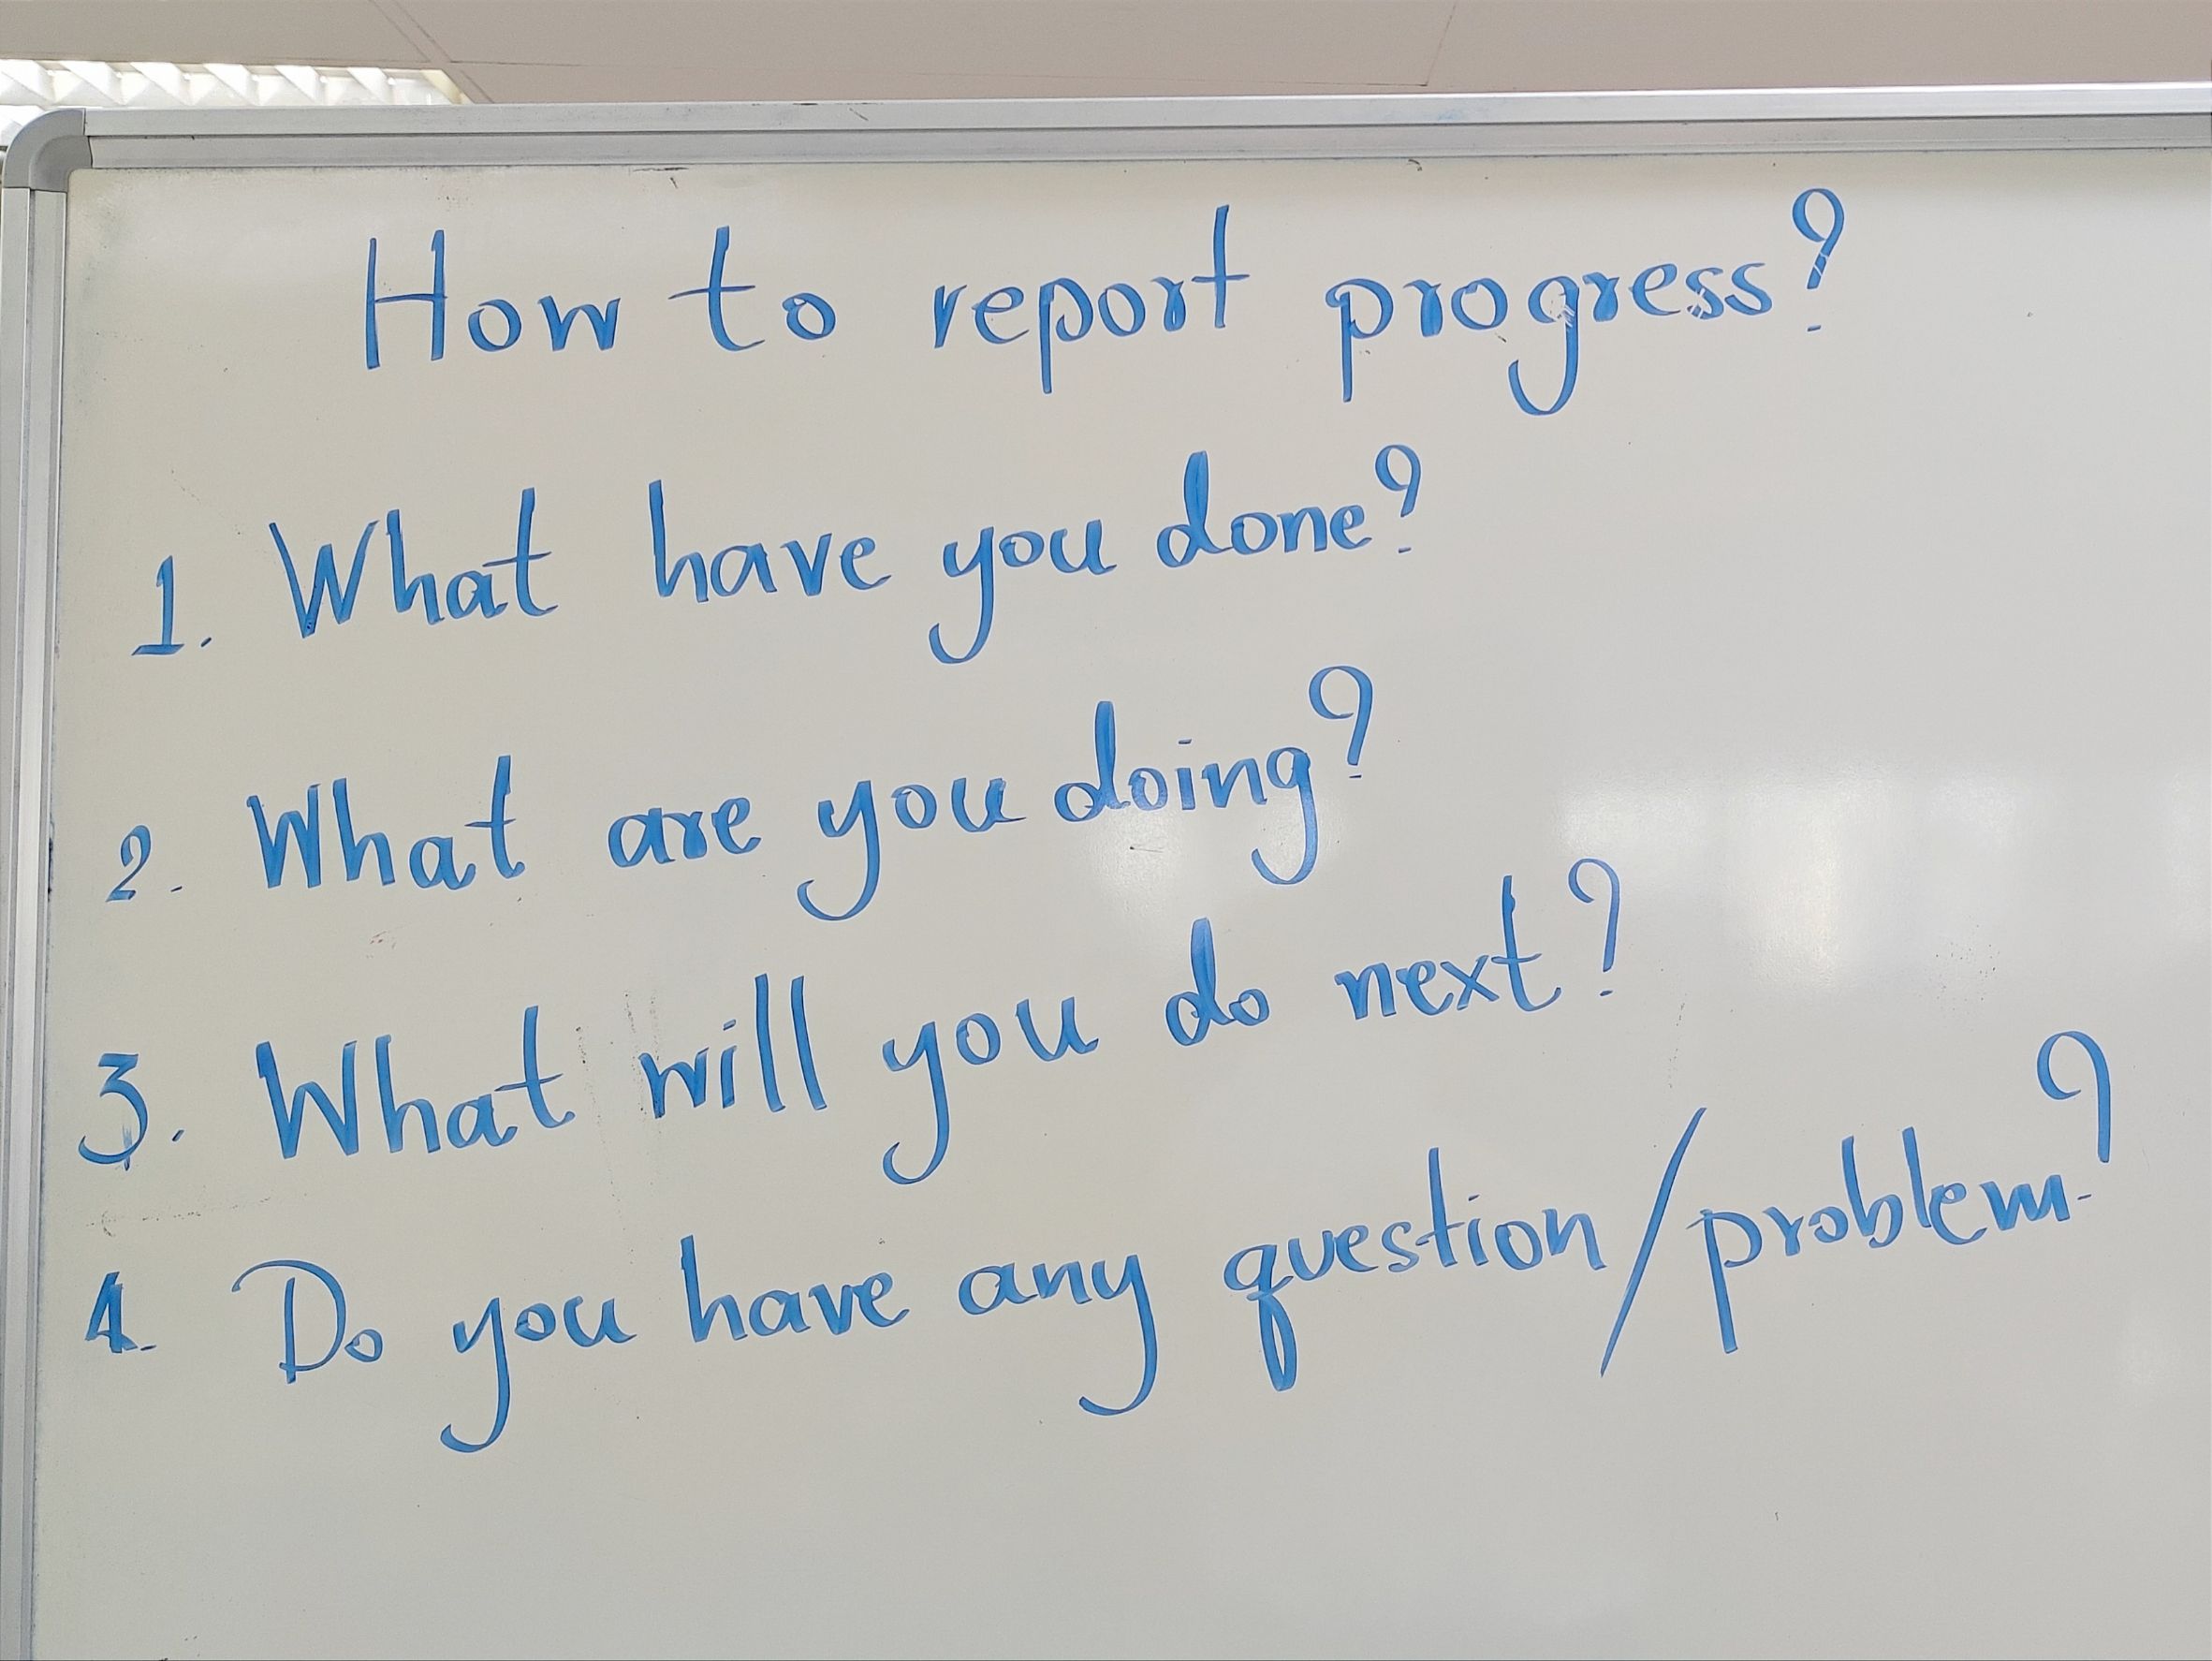 How to report progress?
1. What have you done?
2. What are you doing?
3. What will you do next?
4. Do you have any question/problem?